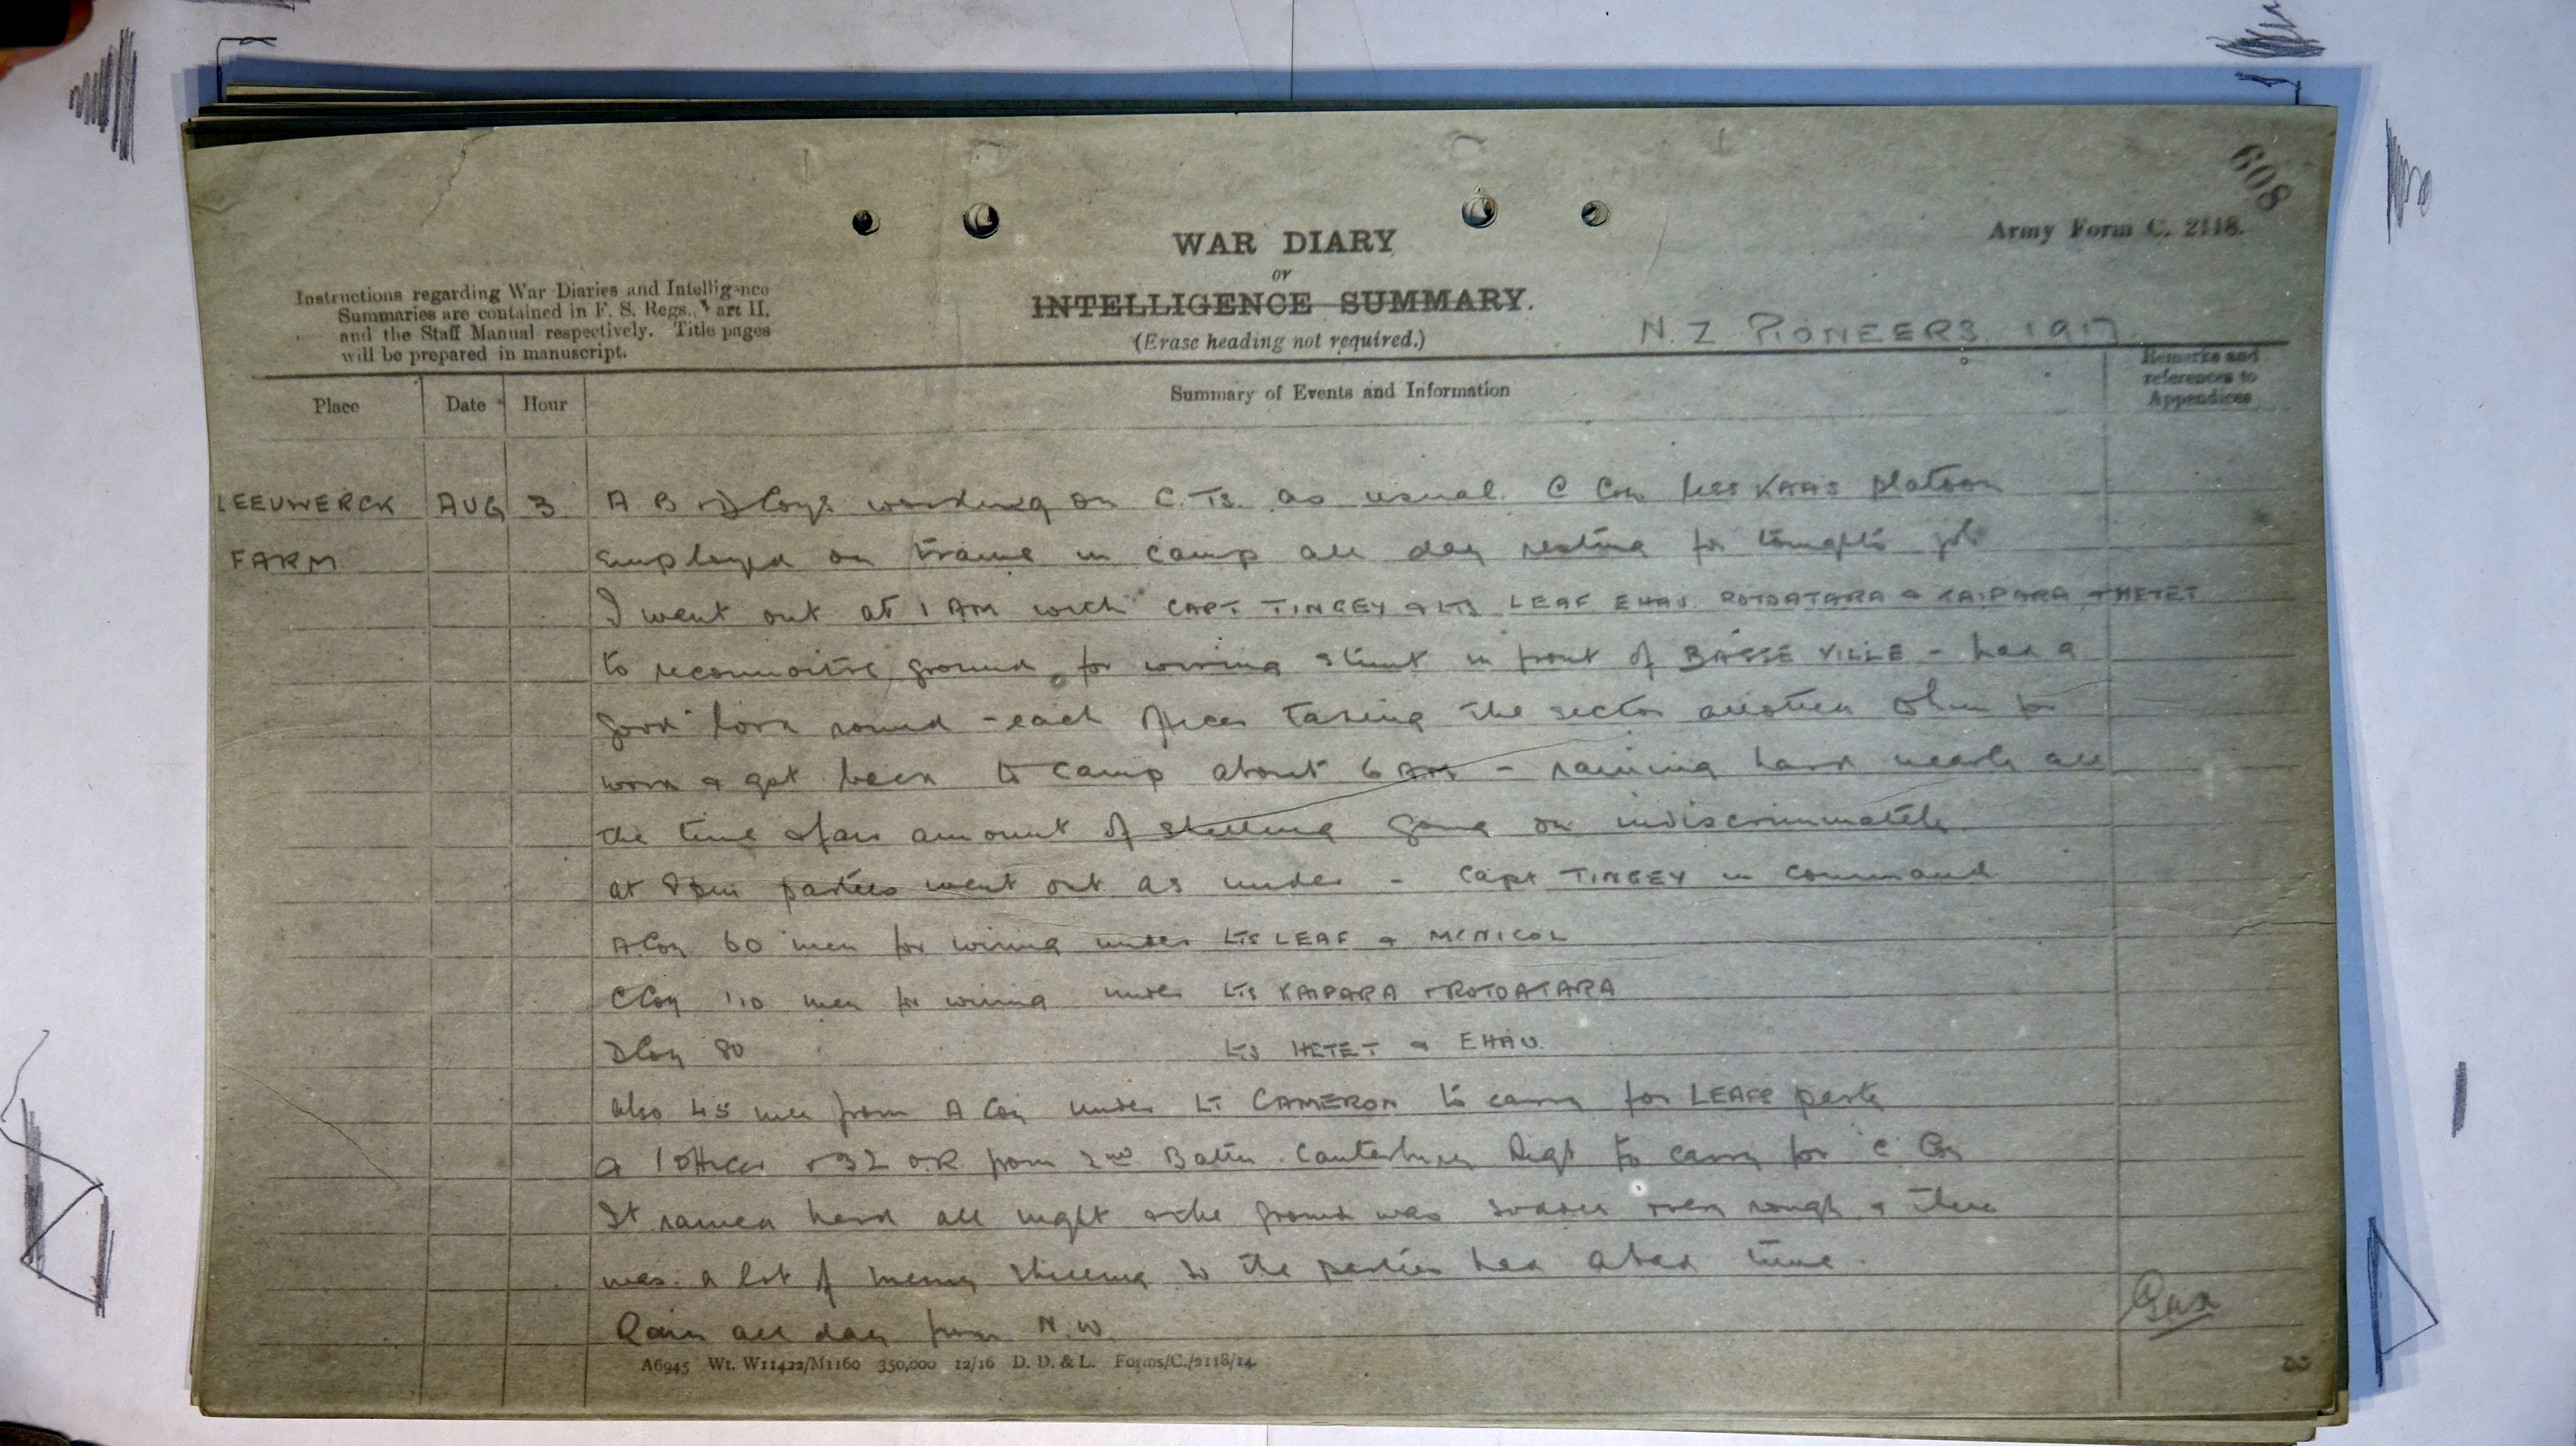 608
Army Form C. 2118.
WAR DIARY
or
INTELLIGENCE SUMMARY.
(Erase heading not required.)
Instructions regarding War Diaries and Intelligence
Summaries are contained in F. S. Regs., Part II.
and the Staff Manual respectively. Title pages
will be prepared in manuscript.
N. Z PIONEERS 1917
Place Date Hour Summary of Events and Information Remarks and references to Appendices
LEEUWERCK AUG 3 A B & D Coys working on C.Ts. as usual. C Coy less KAAS platoon
FARM employed on trams in camp all day resting for tonights job
I went out at 1 AM with CAPT. TINGEY & LTS LEAF EHAU ROTOATARA & KAIPARA & HETET
to reconnoitre ground for wiring stunt in front of BASSE VILLE - had a
good look round - each officer taking the sector allotted to him for
work & got back to camp about 6 AM - raining hard nearly all
the time & fair amount of shelling going on indiscriminately
at 8 pm parties went out as under - Capt TINGEY in command
A Coy 60 men for wiring under Lts LEAF & MCNICOL
C Coy 110 men for wiring under Lts KAIPARA & ROTOATARA
D Coy 80 Lts HETET & EHAU.
also 45 men from A Coy under LT CAMERON to carry for LEAFS party
& 1 Officer & 32 O.R from 2nd Battn. Canterbury Regt to carry for C Coy
It rained hard all night & the ground was sodden & very rough & there
was a lot of shelling so the parties had a bad time.
Rain all day from N.W.
A6945 Wt. W11422/M1160 350,000 12/16 D. D. & L. Forms/C./2118/14.